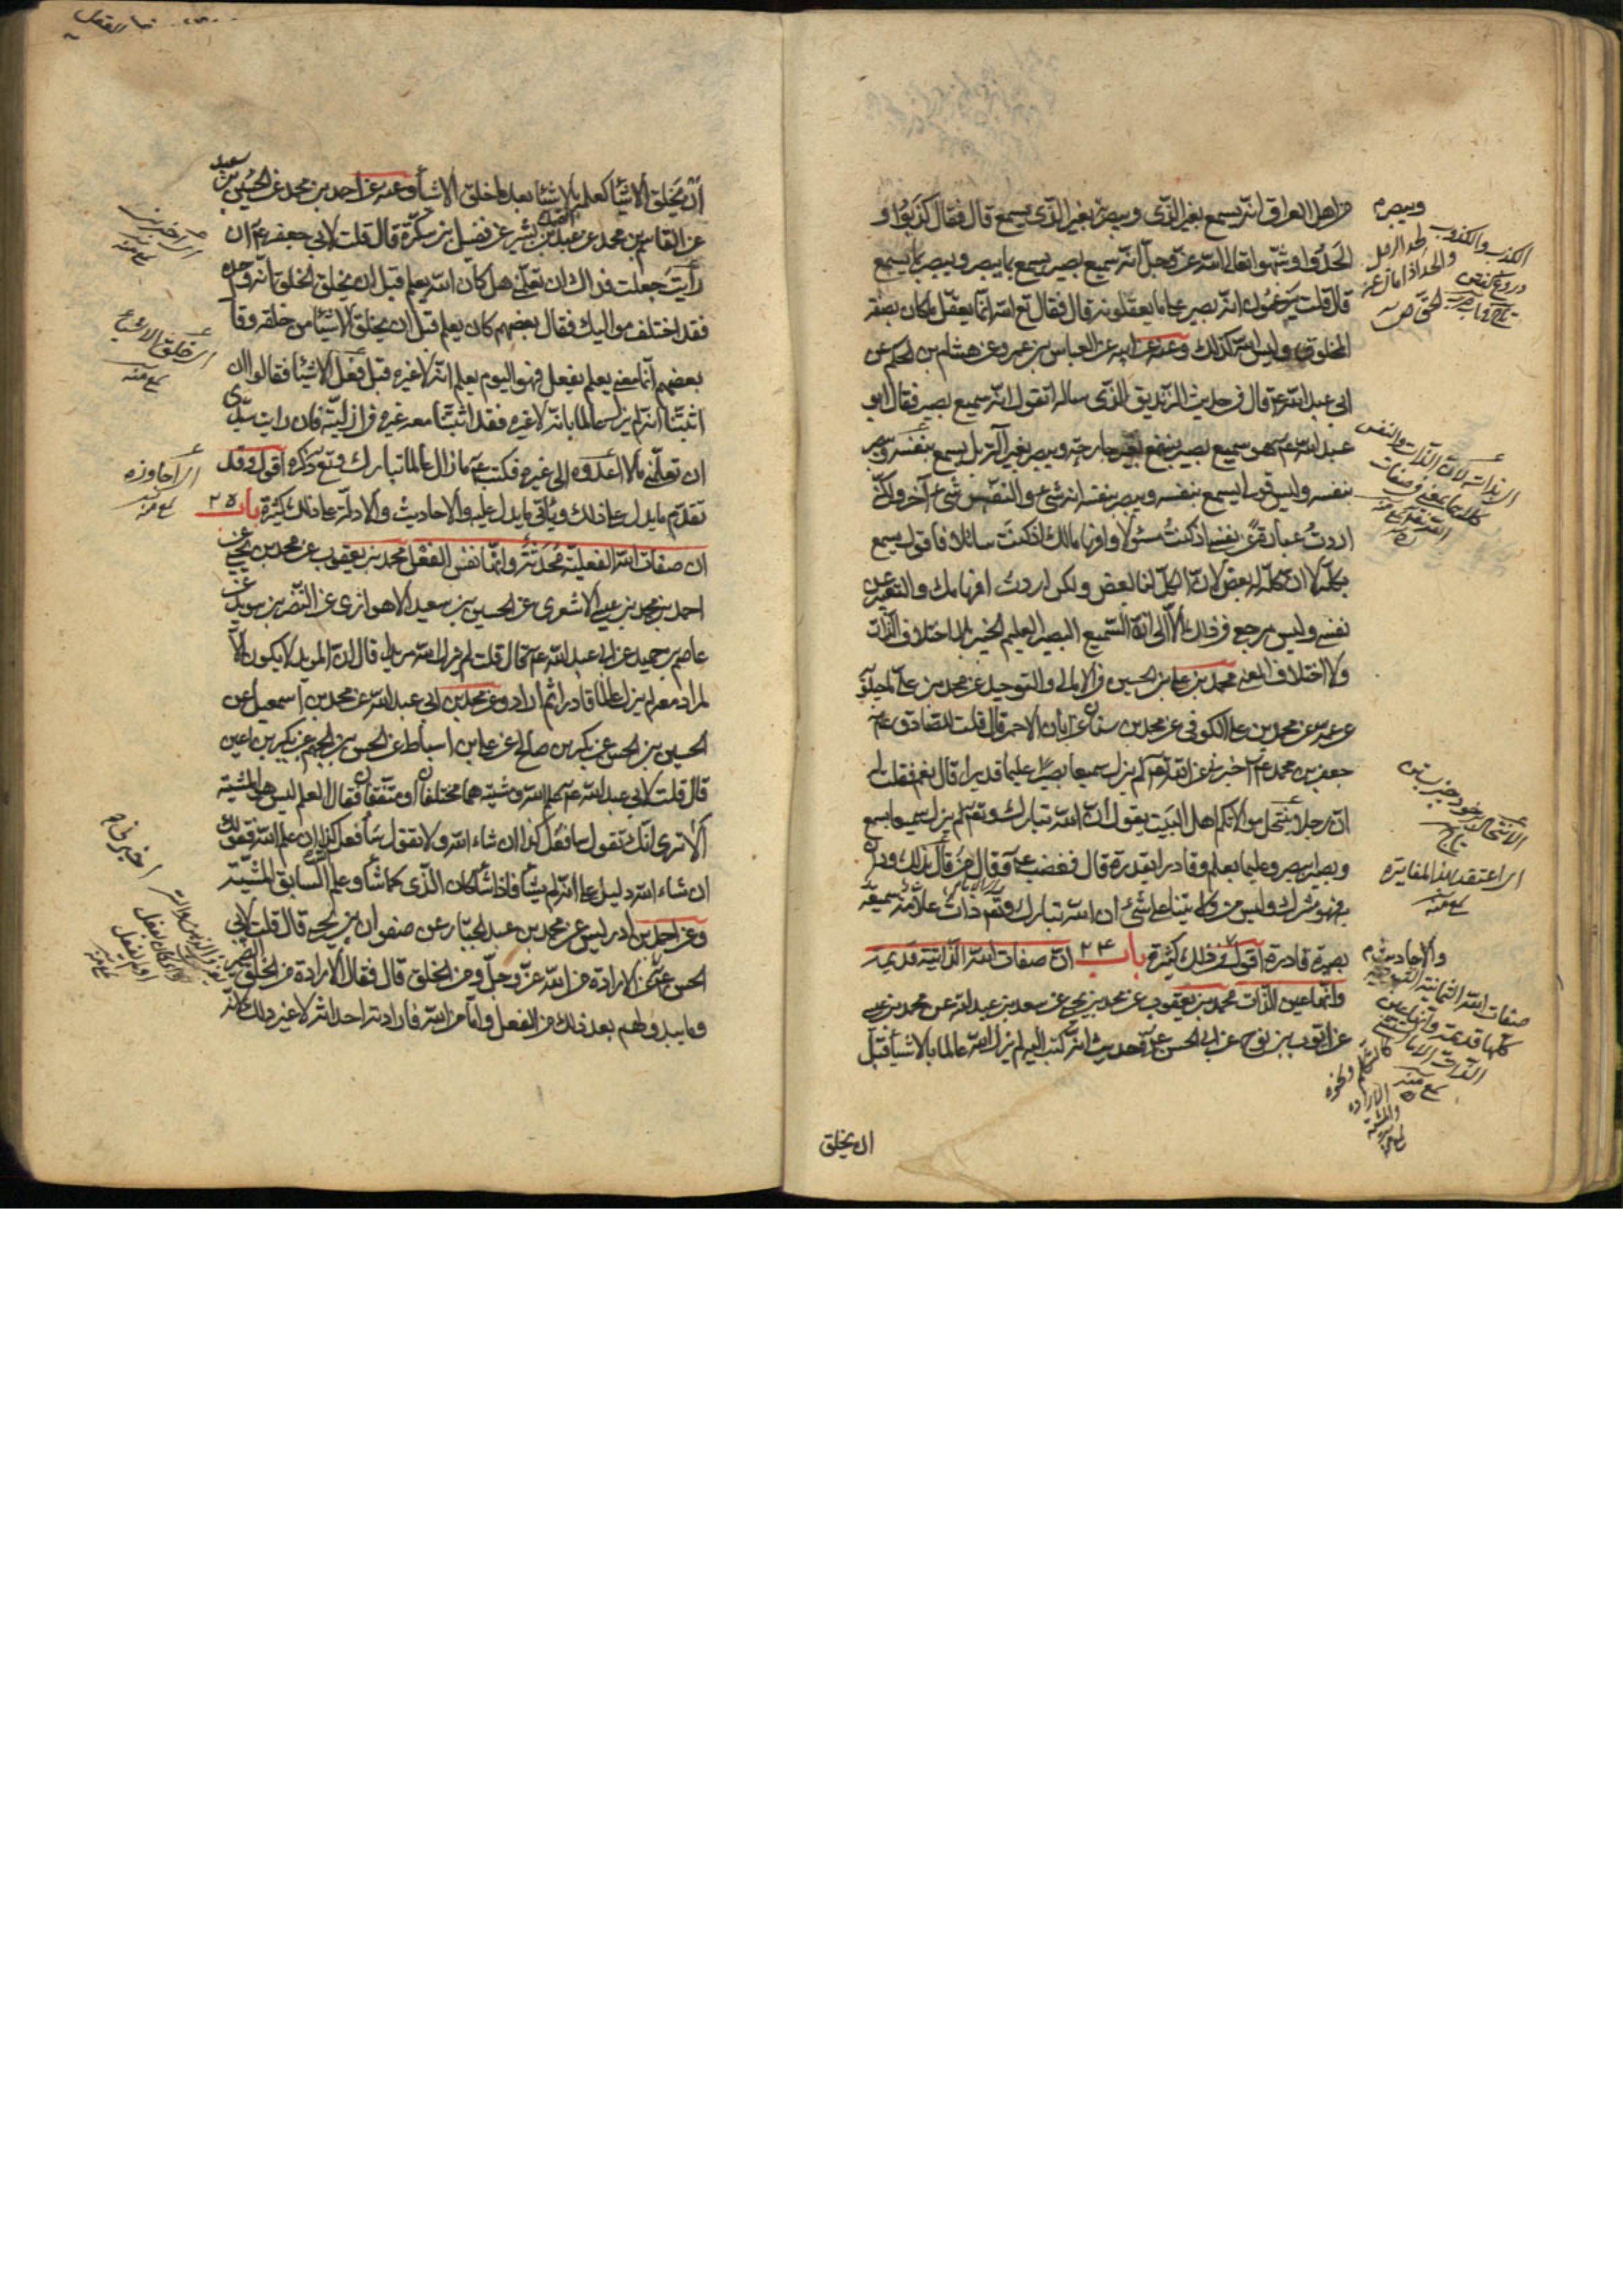 من اهل العراق انه يسمع بغير الذى يبصر ويبصر بغير الذى يسمع قال فقال كذبوا و
الحدوا وشبهوا تعالى الله عز وجل انه سميع بصير يسمع بما يبصر ويبصر بما يسمع
قال قلت يزعمون انه بصير على ما يعقلونه قال فقال تع الله انما يعقل ما كان بصفة
المخلوق وليس الله كذلك وعنه عن ابيه عن العباس بن عمرو عن هشام بن الحكم عن
ابى عبد الله ع قال فى حديث الزنديق الذى ساله اتقول انه سميع بصير فقال ابو
عبد الله ع هو سميع بصير سميع بغير جارحة وبصير بغير آلة بل يسمع بنفسه ويبصر
بنفسه وليس قولى يسمع بنفسه ويبصر بنفسه انه شىء والنفس شىء آخر ولكنى
اردت عبارة عن نفسى اذ كنت مسئولا وافهاما لك اذ كنت سائلا فاقول يسمع
بكله لا ان كله له بعض لان الكل لنا بعض ولكن اردت افهامك والتعبير عن
نفسى وليس مرجعى فى ذلك الا الى انه السميع البصير العليم الخبير بلا اختلاف الذات
ولا اختلاف المعنى محمد بن على بن الحسين فى الامالى والتوحيد عن محمد بن على ماجيلويه
عن عمه عن محمد بن على الكوفى عن محمد بن سنان عن ابان الاحمر قال قلت للصادق
جعفر بن محمد ع اخبرنى عن الله تع لم يزل سميعا بصيرا عليما قديرا قال نعم فقلت له
ان رجلا ينتحل موالاتكم اهل البيت يقول ان الله تبارك وتع لم يزل سميعا بسمع
وبصيرا ببصر وعليما بعلم وقادرا بقدرة قال فغضب ع وقال من قال بذلك ودان
به فهو مشرك وليس من ولايتنا على شئ ان الله تبارك وتع ذات علامة سميعة
بصيرة قادرة اقول وفى ذلك كثيرة باب ٢٤ ان صفات الله الذاتية قديمة
وانها عين الذات محمد بن يعقوب عن محمد بن يحيى عن سعد بن عبد الله عن محمد بن عيسى
عن ايوب بن نوح عن ابى الحسن ع فى حديث انه كتب اليه لم يزل الله عالما بالاشياء قبل
ان يخلق
ويبصر م
والاحاديث م
صفات الله الثمانية
كلها قديمة وانها عين
الذات
ان يخلق الاشياء كعلمه بالاشياء بعد ما خلق الاشياء وعنه عن احمد بن محمد عن الحسين بن سعيد
عن القاسم بن محمد عن عبد الصمد بن بشير عن فضيل بن سكرة قال قلت لابى جعفر ع ان
رأيت جعلت فداك ان تعلمنى هل كان الله يعلم قبل ان يخلق الخلق انه وحده
فقد اختلف مواليك فقال بعضهم كان يعلم قبل ان يخلق الاشياء من خلقه وقال
بعضهم انما معنى يعلم يفعل فهو اليوم يعلم انه لا غيره قبل فعل الاشياء فقالوا ان
اثبتنا انه لم يزل عالما بانه لا غيره فقد اثبتنا معه غيره فى ازليته فان رايت سيدى
ان تعلمنى ما لا اعدوه الى غيره فكتب ع ما زال عالما تبارك وتع ذكره اقول وقد
تقدم ما يدل على ذلك وياتى ما يدل عليه والاحاديث والادلة على ذلك كثيرة باب ٢٥
ان صفات الله الفعلية محدثة وانها نفس الفعل محمد بن يعقوب عن محمد بن يحيى عن
احمد بن محمد بن عيسى الاشعرى عن الحسين بن سعيد الاهوازى عن النضر بن سويد عن
عاصم بن حميد عن ابى عبد الله ع قال قلت لم يزل الله مريدا قال ان المريد لا يكون الا
لمراد معه لم يزل عالما قادرا ثم اراد وعن محمد بن ابى عبد الله عن محمد بن اسمعيل عن
الحسين بن الحسن عن بكر بن صالح عن على بن اسباط عن الحسن بن الجهم عن بكير بن اعين
قال قلت لابى عبد الله ع علم الله ومشيته هما مختلفان او متفقان فقال العلم ليس هو المشية
الا ترى انك تقول سافعل كذا ان شاء الله ولا تقول سافعل كذا ان علم الله فقولك
ان شاء الله دليل على انه لم يشأ فاذا شاء كان الذى كما شاء وعلم الله السابق المشية
وعن احمد بن ادريس عن محمد بن عبد الجبار عن صفوان بن يحيى قال قلت لابى
الحسن ع اخبرنى عن الارادة من الله عز وجل ومن الخلق قال فقال الارادة من الخلق الضمير
وما يبدو لهم بعد ذلك من الفعل واما من الله فارادته احداثه لا غير ذلك لانه